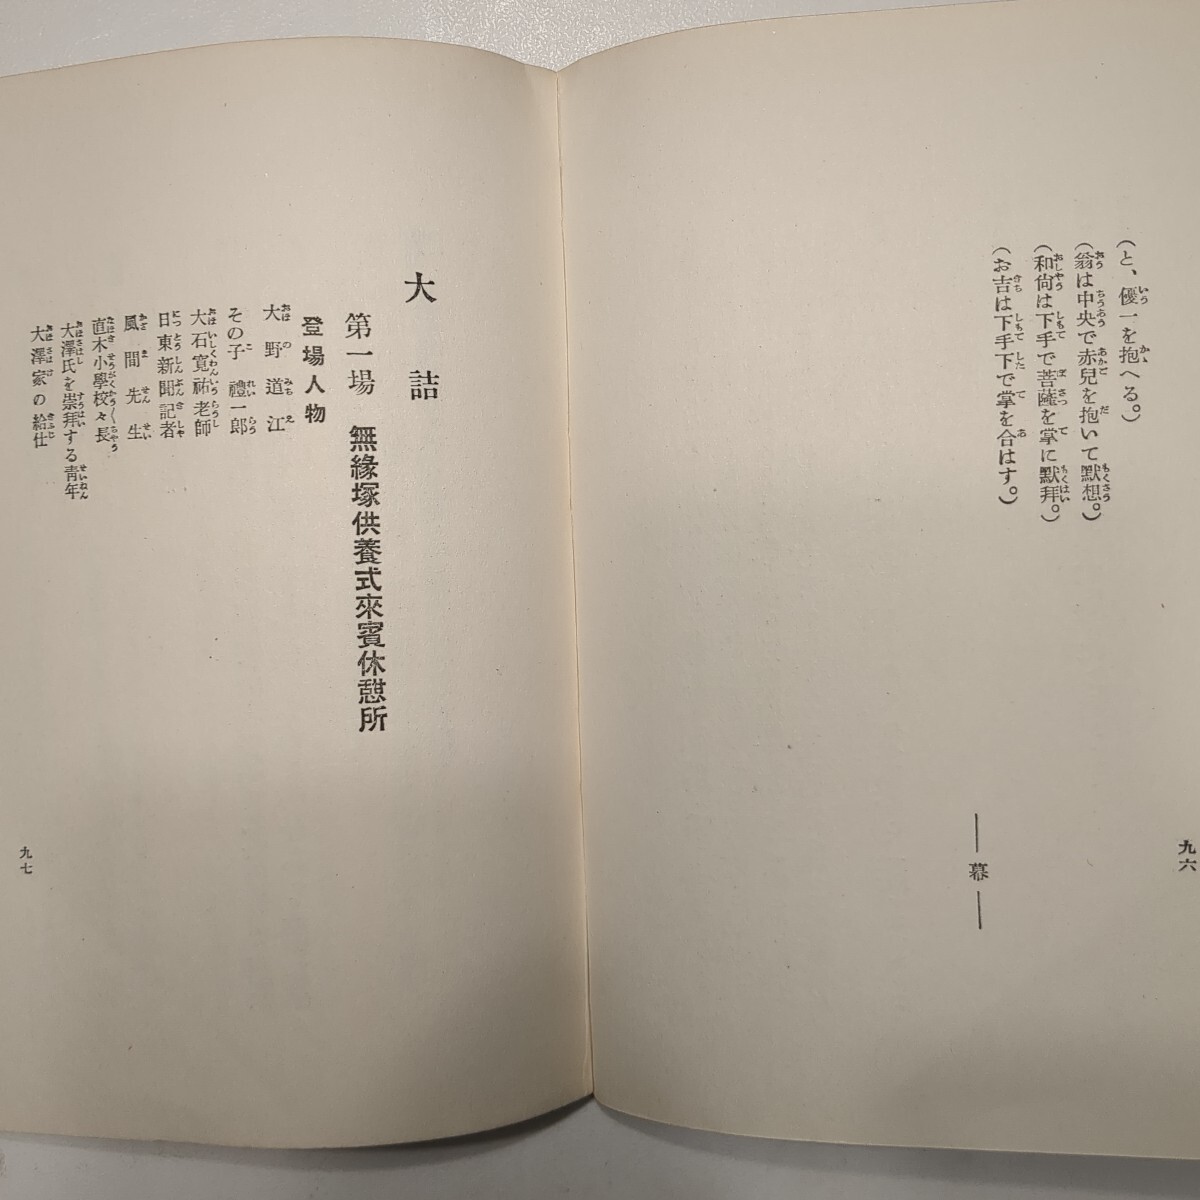 (と、優一を抱へる。)
(翁は中央で赤兒を抱いて默想。)
(和尙は下手で菩薩を掌に默拜。)
(お吉は下手下で掌を合はす。)
―幕―
九六
大詰
第一場 無緣塚供養式來賓休憩所
登場人物
大野道江
その子 禮一郎
大石寬祐老師
日東新聞記者
風間先生
直木小學校々長
大澤氏を崇拜する靑年
大澤家の給仕
九七